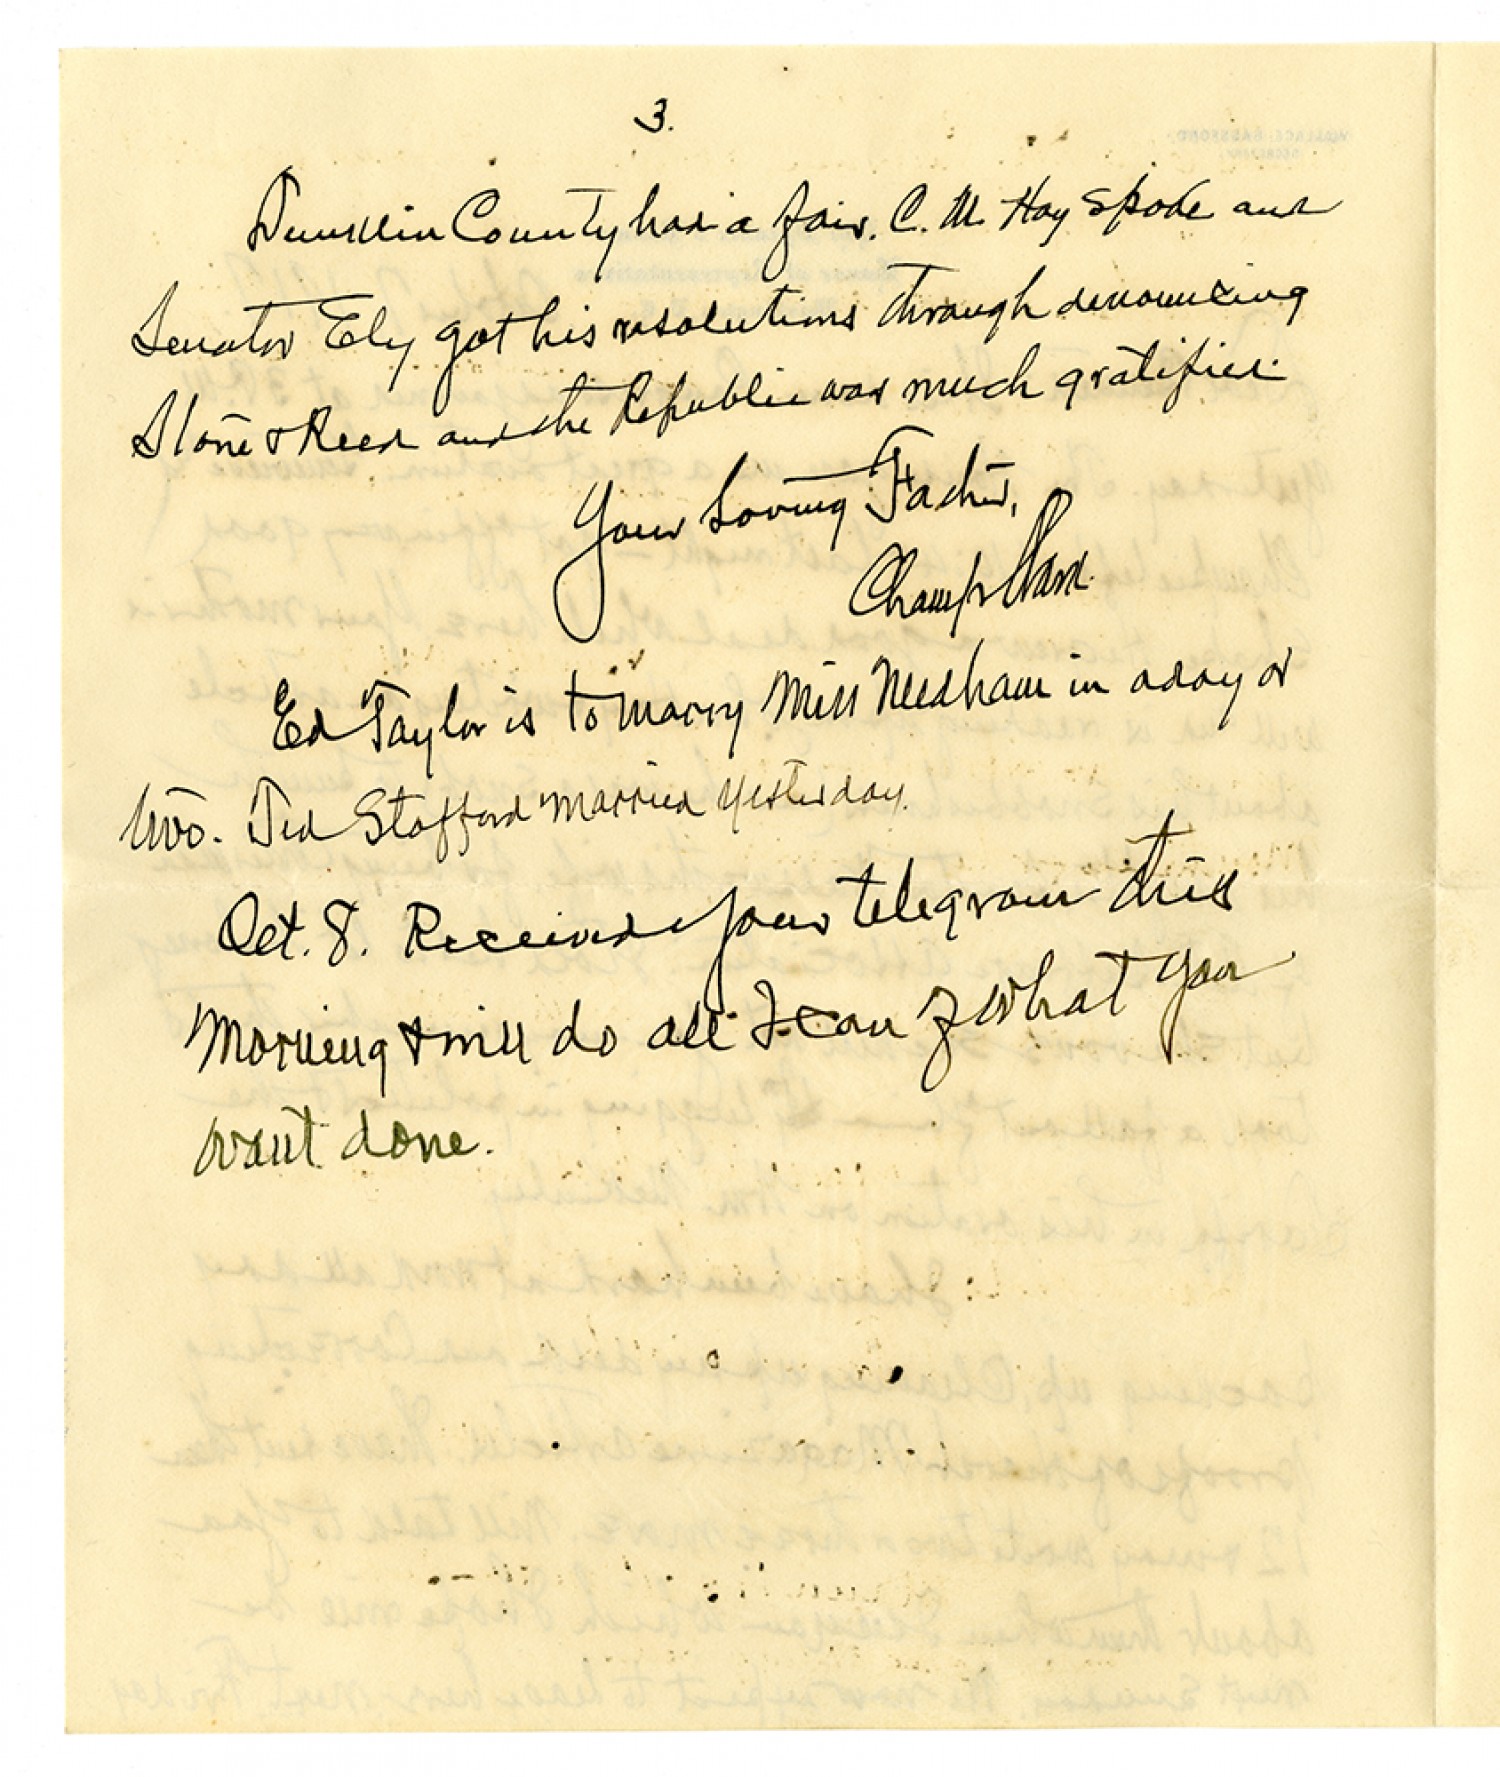 3.
Dunklin County had a fair. C. M. Hay spoke and
Senator Ely got his resolutions through denouncing
Stone & Reed and the Republic was much gratified.
Your Loving Father,
Champ Clark.
Ed Taylor is to marry Miss Needham in a day or
two. Ted Stafford married yesterday.
Oct. 8. Received your telegram this
morning & will do all I can of what you
want done.